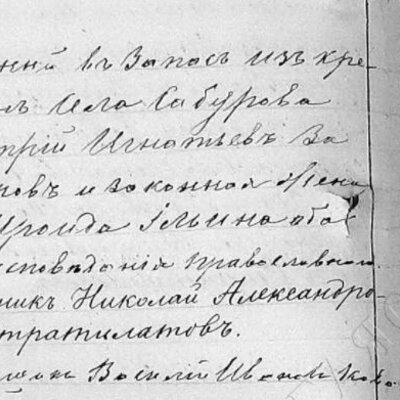 нной въ Запасъ изъ кре-
нъ Села Сабурова
трій Игнатьевъ За
новъ и законная жена
Ираида Ильина оба
исповѣданія православнаго
никъ Николай Александро-
тратилатовъ.
Василій Ивановъ